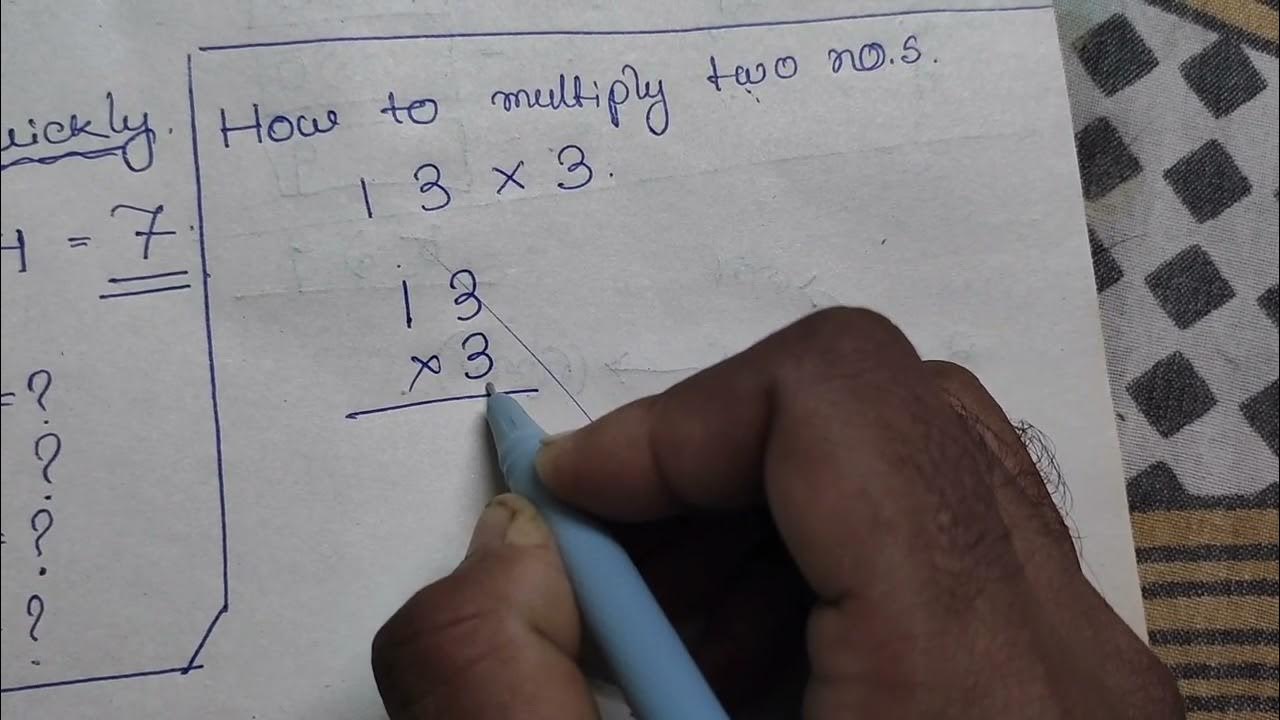 uickly.
4 = 7
= ?
?
?
?
How to multiply two no.s.
1 3 × 3.
1 3
× 3